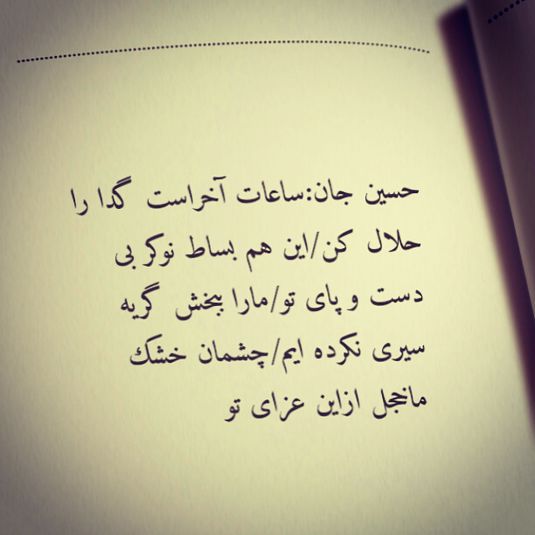 حسین جان:ساعات آخراست گدا را
حلال کن/این هم بساط نوکر بی
دست و پای تو/مارا ببخش گریه
سیری نکرده ایم/چشمان خشک
ماخجل ازاین عزای تو